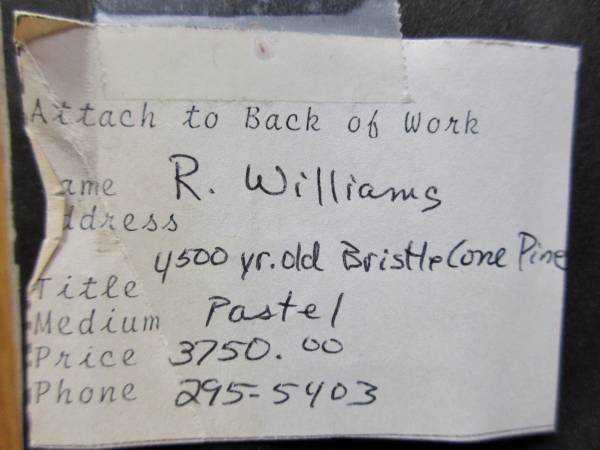 Attach to Back of Work
ame R. Williams
ddress
Title 4500 yr. old BristleCone Pine
Medium Pastel
Price 3750.00
Phone 295-5403